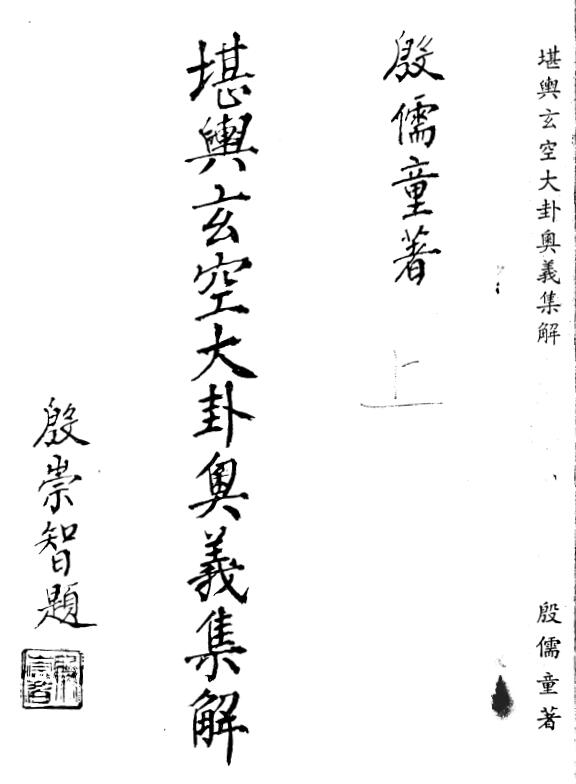 堪輿玄空大卦奥義集解
殷儒童著
殷儒童著
上
堪輿玄空大卦奥義集解
殷崇智題